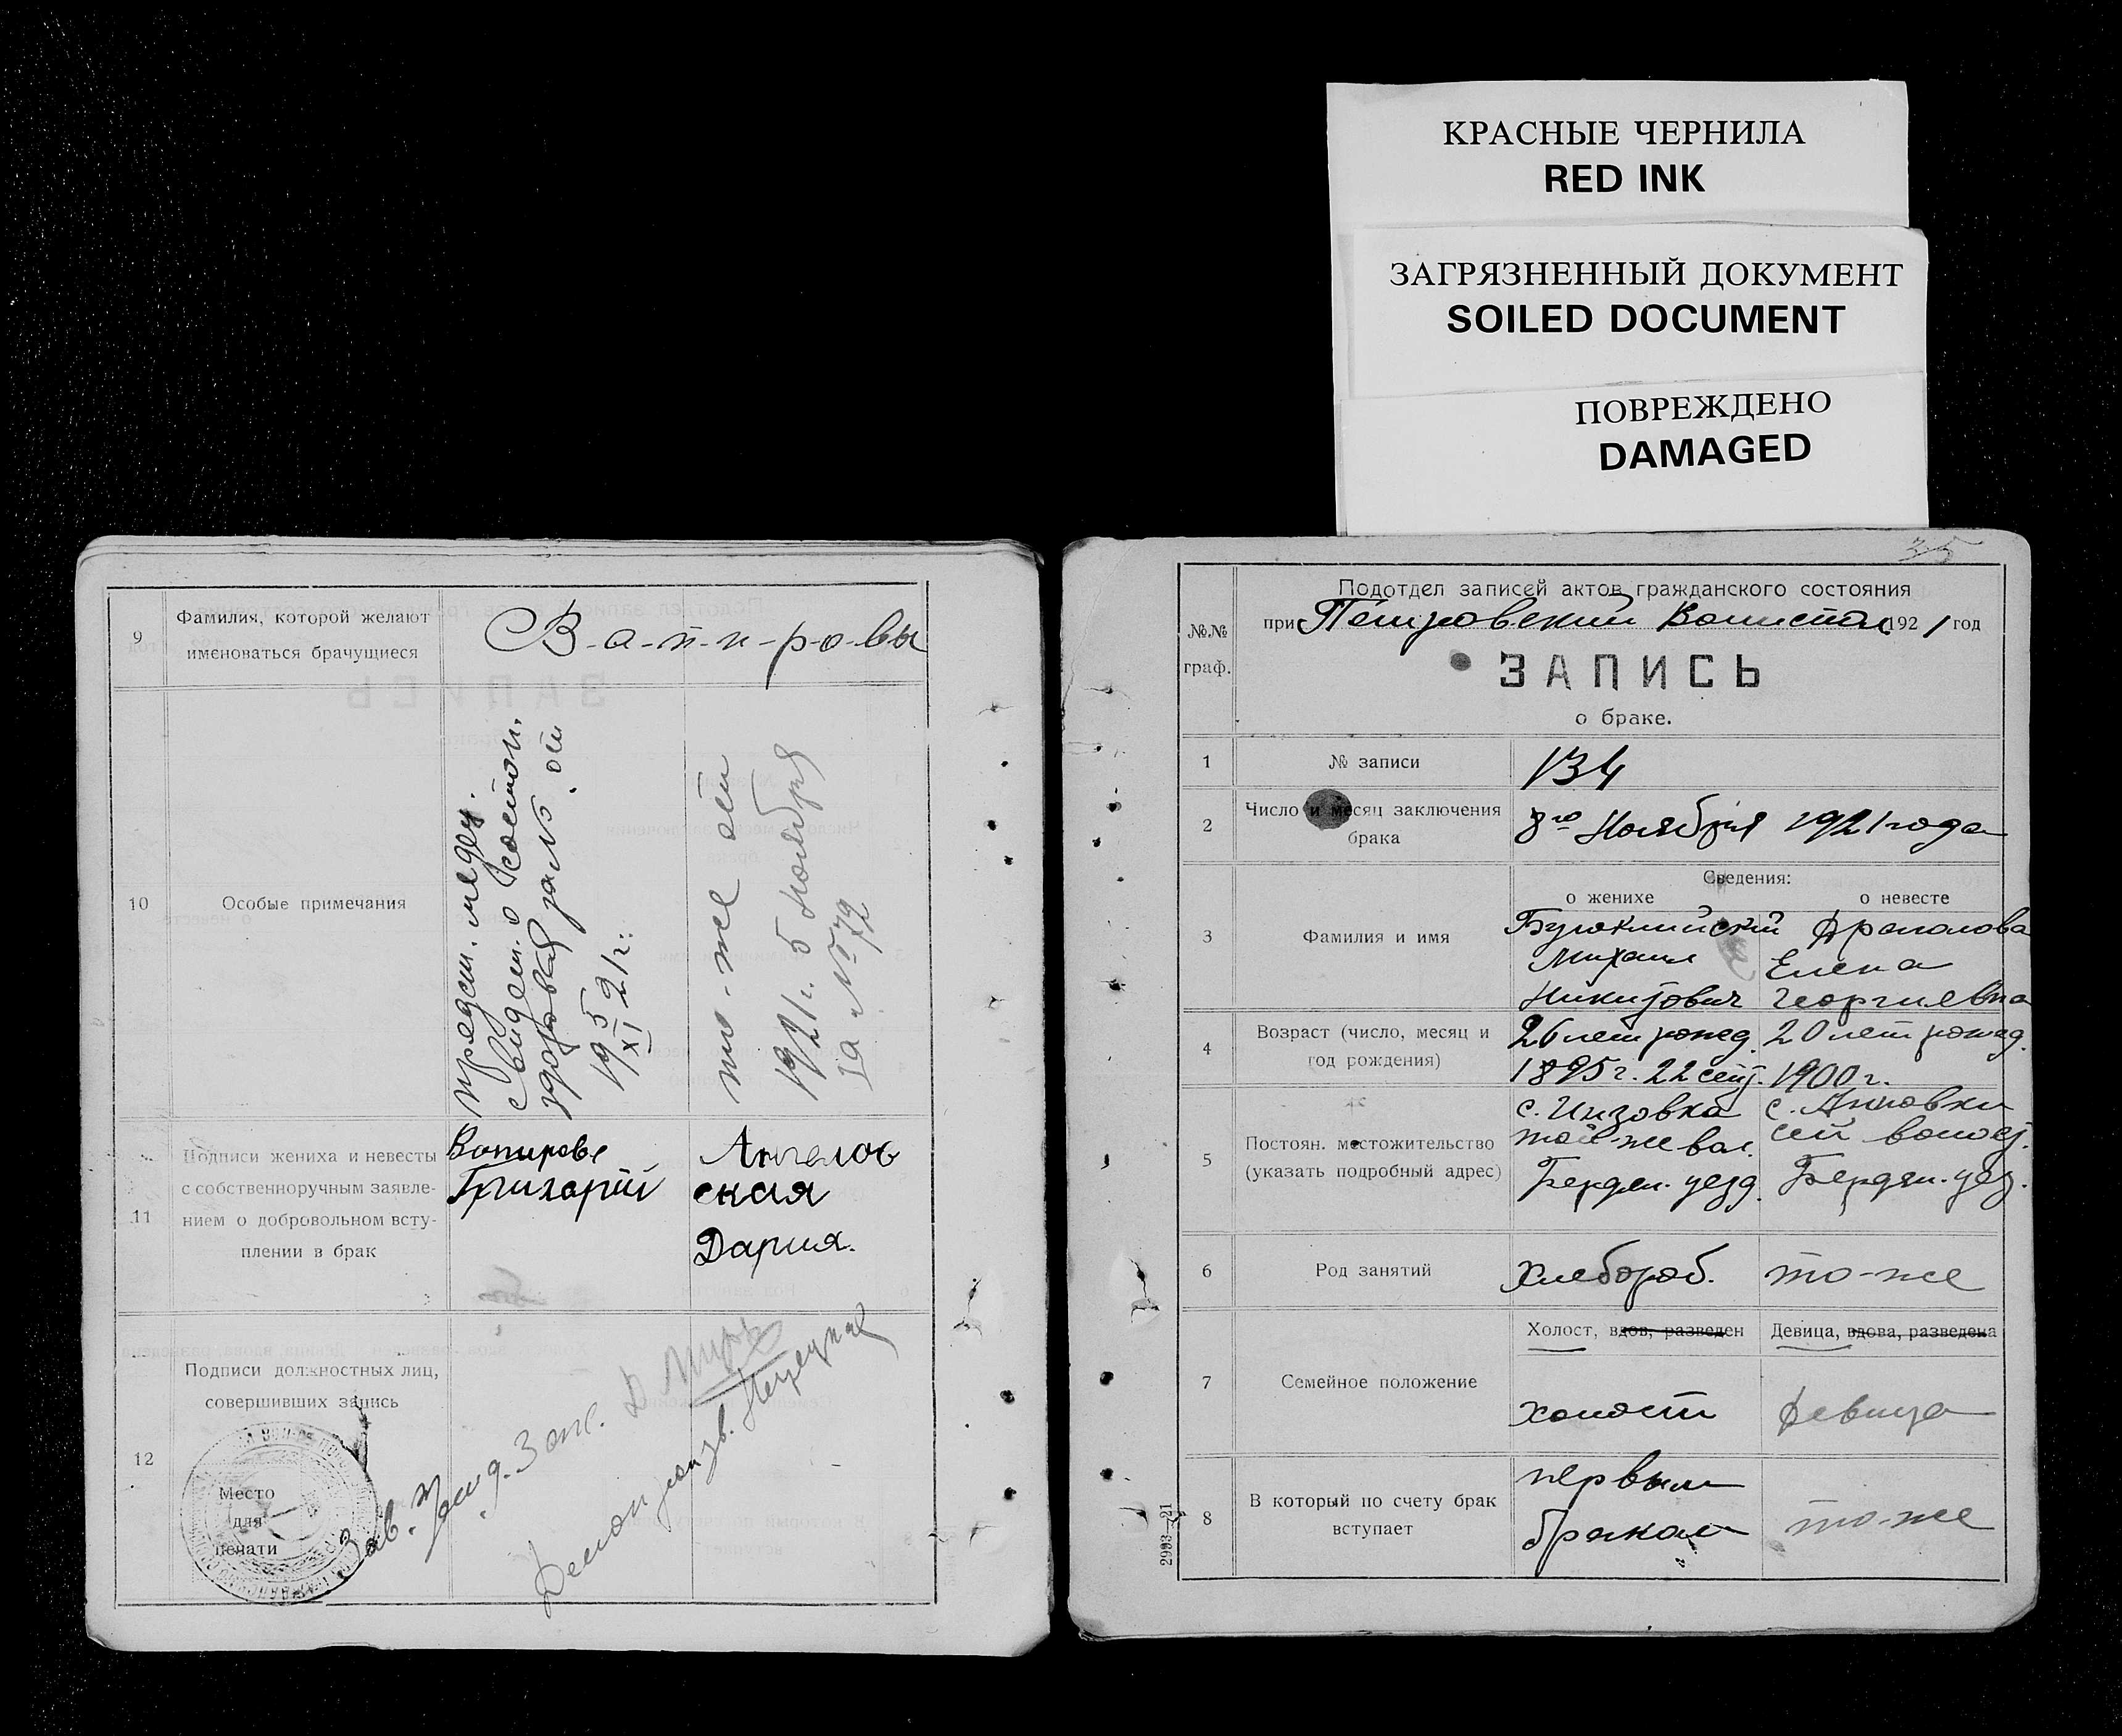 КРАСНЫЕ ЧЕРНИЛА
RED INK
ЗАГРЯЗНЕННЫЙ ДОКУМЕНТ
SOILED DOCUMENT
ПОВРЕЖДЕНО
DAMAGED
9
Фамилия, которой желают
именоваться брачущиеся
В-а-п-и-р-о-вы
10
Особые примечания
предст. между.
свидет. о состоян.
здоровья за № от
19 5/XI 21 г.
то-же от
1921 г. 5 ноября
за № 72
11
Подписи жениха и невесты
с собственноручным заявле-
нием о добровольном всту-
плении в брак
Вапировъ
Григорий
Ангелов
ская
Дария.
12
Подписи должностных лиц,
совершивших запись
Место
для
печати
Зав.
Делопроизв.
35
№№
граф.
Подотдел записей актов гражданского состояния
при Петровский Волистол 1921 год
ЗАПИСЬ
о браке.
1
№ записи
134
2
Число и месяц заключения
брака
8го Ноября 1921 года
Сведения:
о женихе
о невесте
3
Фамилия и имя
Буюклийский
Михаил
Никитович
Драгалова
Елена
Георгиевна
4
Возраст (число, месяц и
год рождения)
26 лет рожд.
1895 г. 22 сент.
20 лет рожд.
1900 г.
5
Постоян. местожительство
(указать подробный адрес)
с. Инзовка
той-же вол.
Бердян. уезд.
с. Анновки
сей волост.
Бердян. уез.
6
Род занятий
Хлебороб.
то-же
7
Семейное положение
Холост, вдов, разведен
Девица, вдова, разведена
холост
девица
8
В который по счету брак
вступает
первым
браком
то-же
2993—21